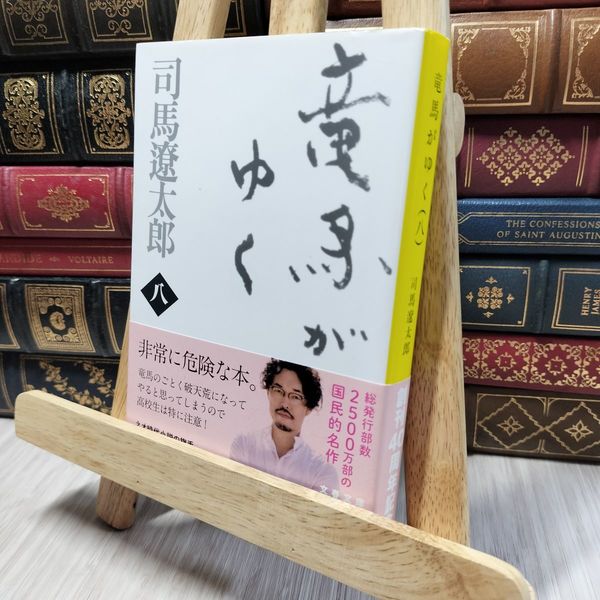 竜馬が
ゆく
司馬遼太郎
八
竜馬がゆく(八)
司馬遼太郎
非常に危険な本。
竜馬のごとく破天荒になって
やると思ってしまうので
高校生は特に注意!
総発行部数
2500万部の
国民的名作
CANDIDE
VOLTAIRE
THE CONFESSIONS
OF SAINT AUGUSTINE
HENRY
JAMES